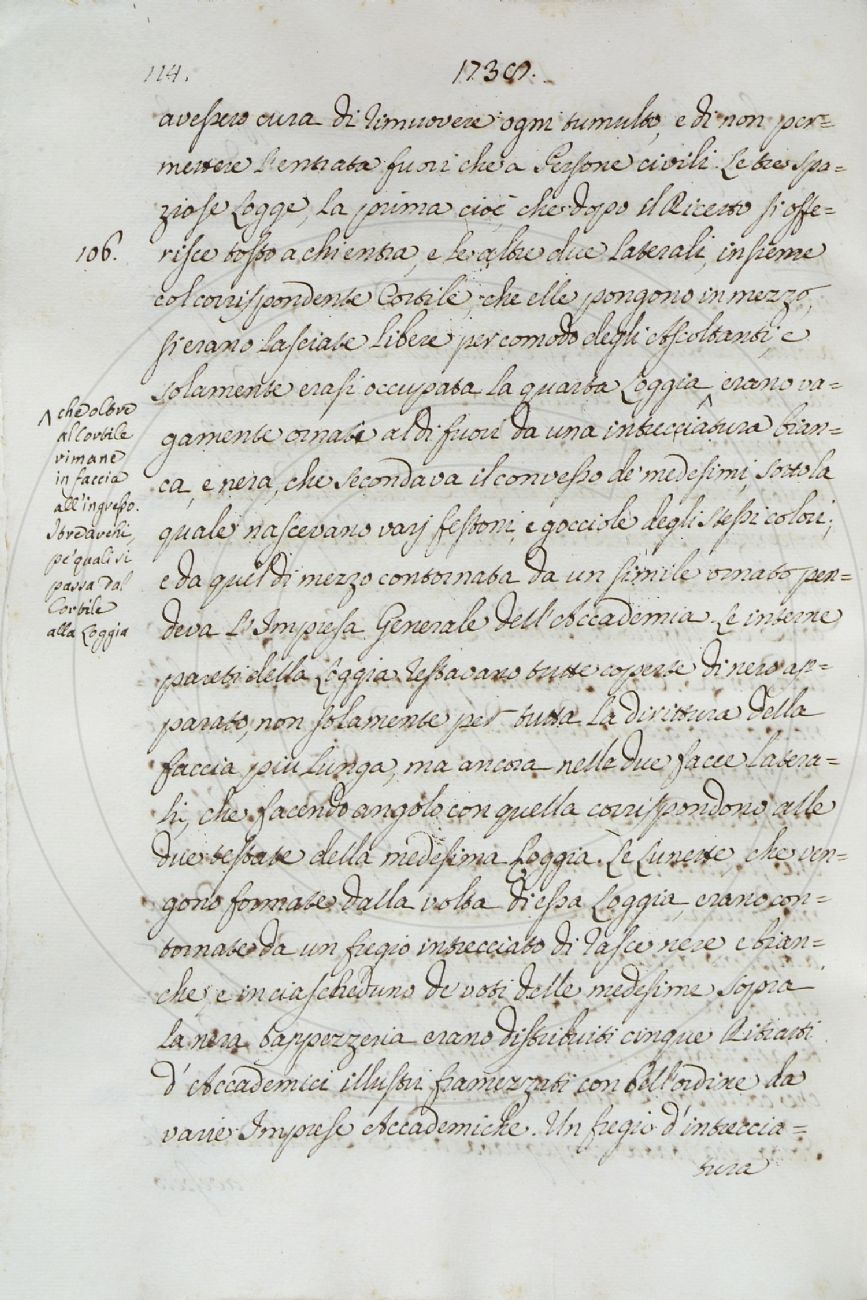 114.
1738.
avessero cura di rimuovere ogni tumulto, e di non per=
mettere l'entrata fuori che a Persone civili. Le tre spa=
ziose Logge, la prima cioè, che dopo il Ricetto si offe=
106.
risce tosto a chi entra, e le altre due laterali, insieme
col corrispondente Cortile, che elle pongono in mezzo,
si erano lasciate libere per comodo degli Ascoltanti, e
solamente erasi occupata la quarta Loggia ^ erano va=
gamente ornate al di fuori da una intrecciatura bian=
ca, e nera, che secondava il convesso de' medesimi, sotto la
quale nascevano varj festoni, e gocciole degli stessi colori;
e da quel di mezzo contornata da un simile ornato pen=
deva l'Impresa Generale dell'Accademia. Le interne
pareti della Loggia restavano tutte coperte di nero ap=
parato, non solamente per tutta la dirittura della
faccia più lunga, ma ancora nelle due facce latera=
li, che facendo angolo con quella corrispondono alle
due testate della medesima Loggia. Le Lunette, che ven=
gono formate dalla volta di essa Loggia, erano con=
tornate da un fregio intrecciato di fasce nere e bian=
che, e in ciascheduno de' voti delle medesime sopra
la nera tappezzeria erano distribuiti cinque Ritratti
d'Accademici illustri framezzati con bell'ordine da
varie Imprese Accademiche. Un fregio d'intreccia=
tura
^ che oltre
al Cortile
rimane
in faccia
all'ingresso.
I tre archi,
pe' quali si
passa dal
Cortile
alla Loggia